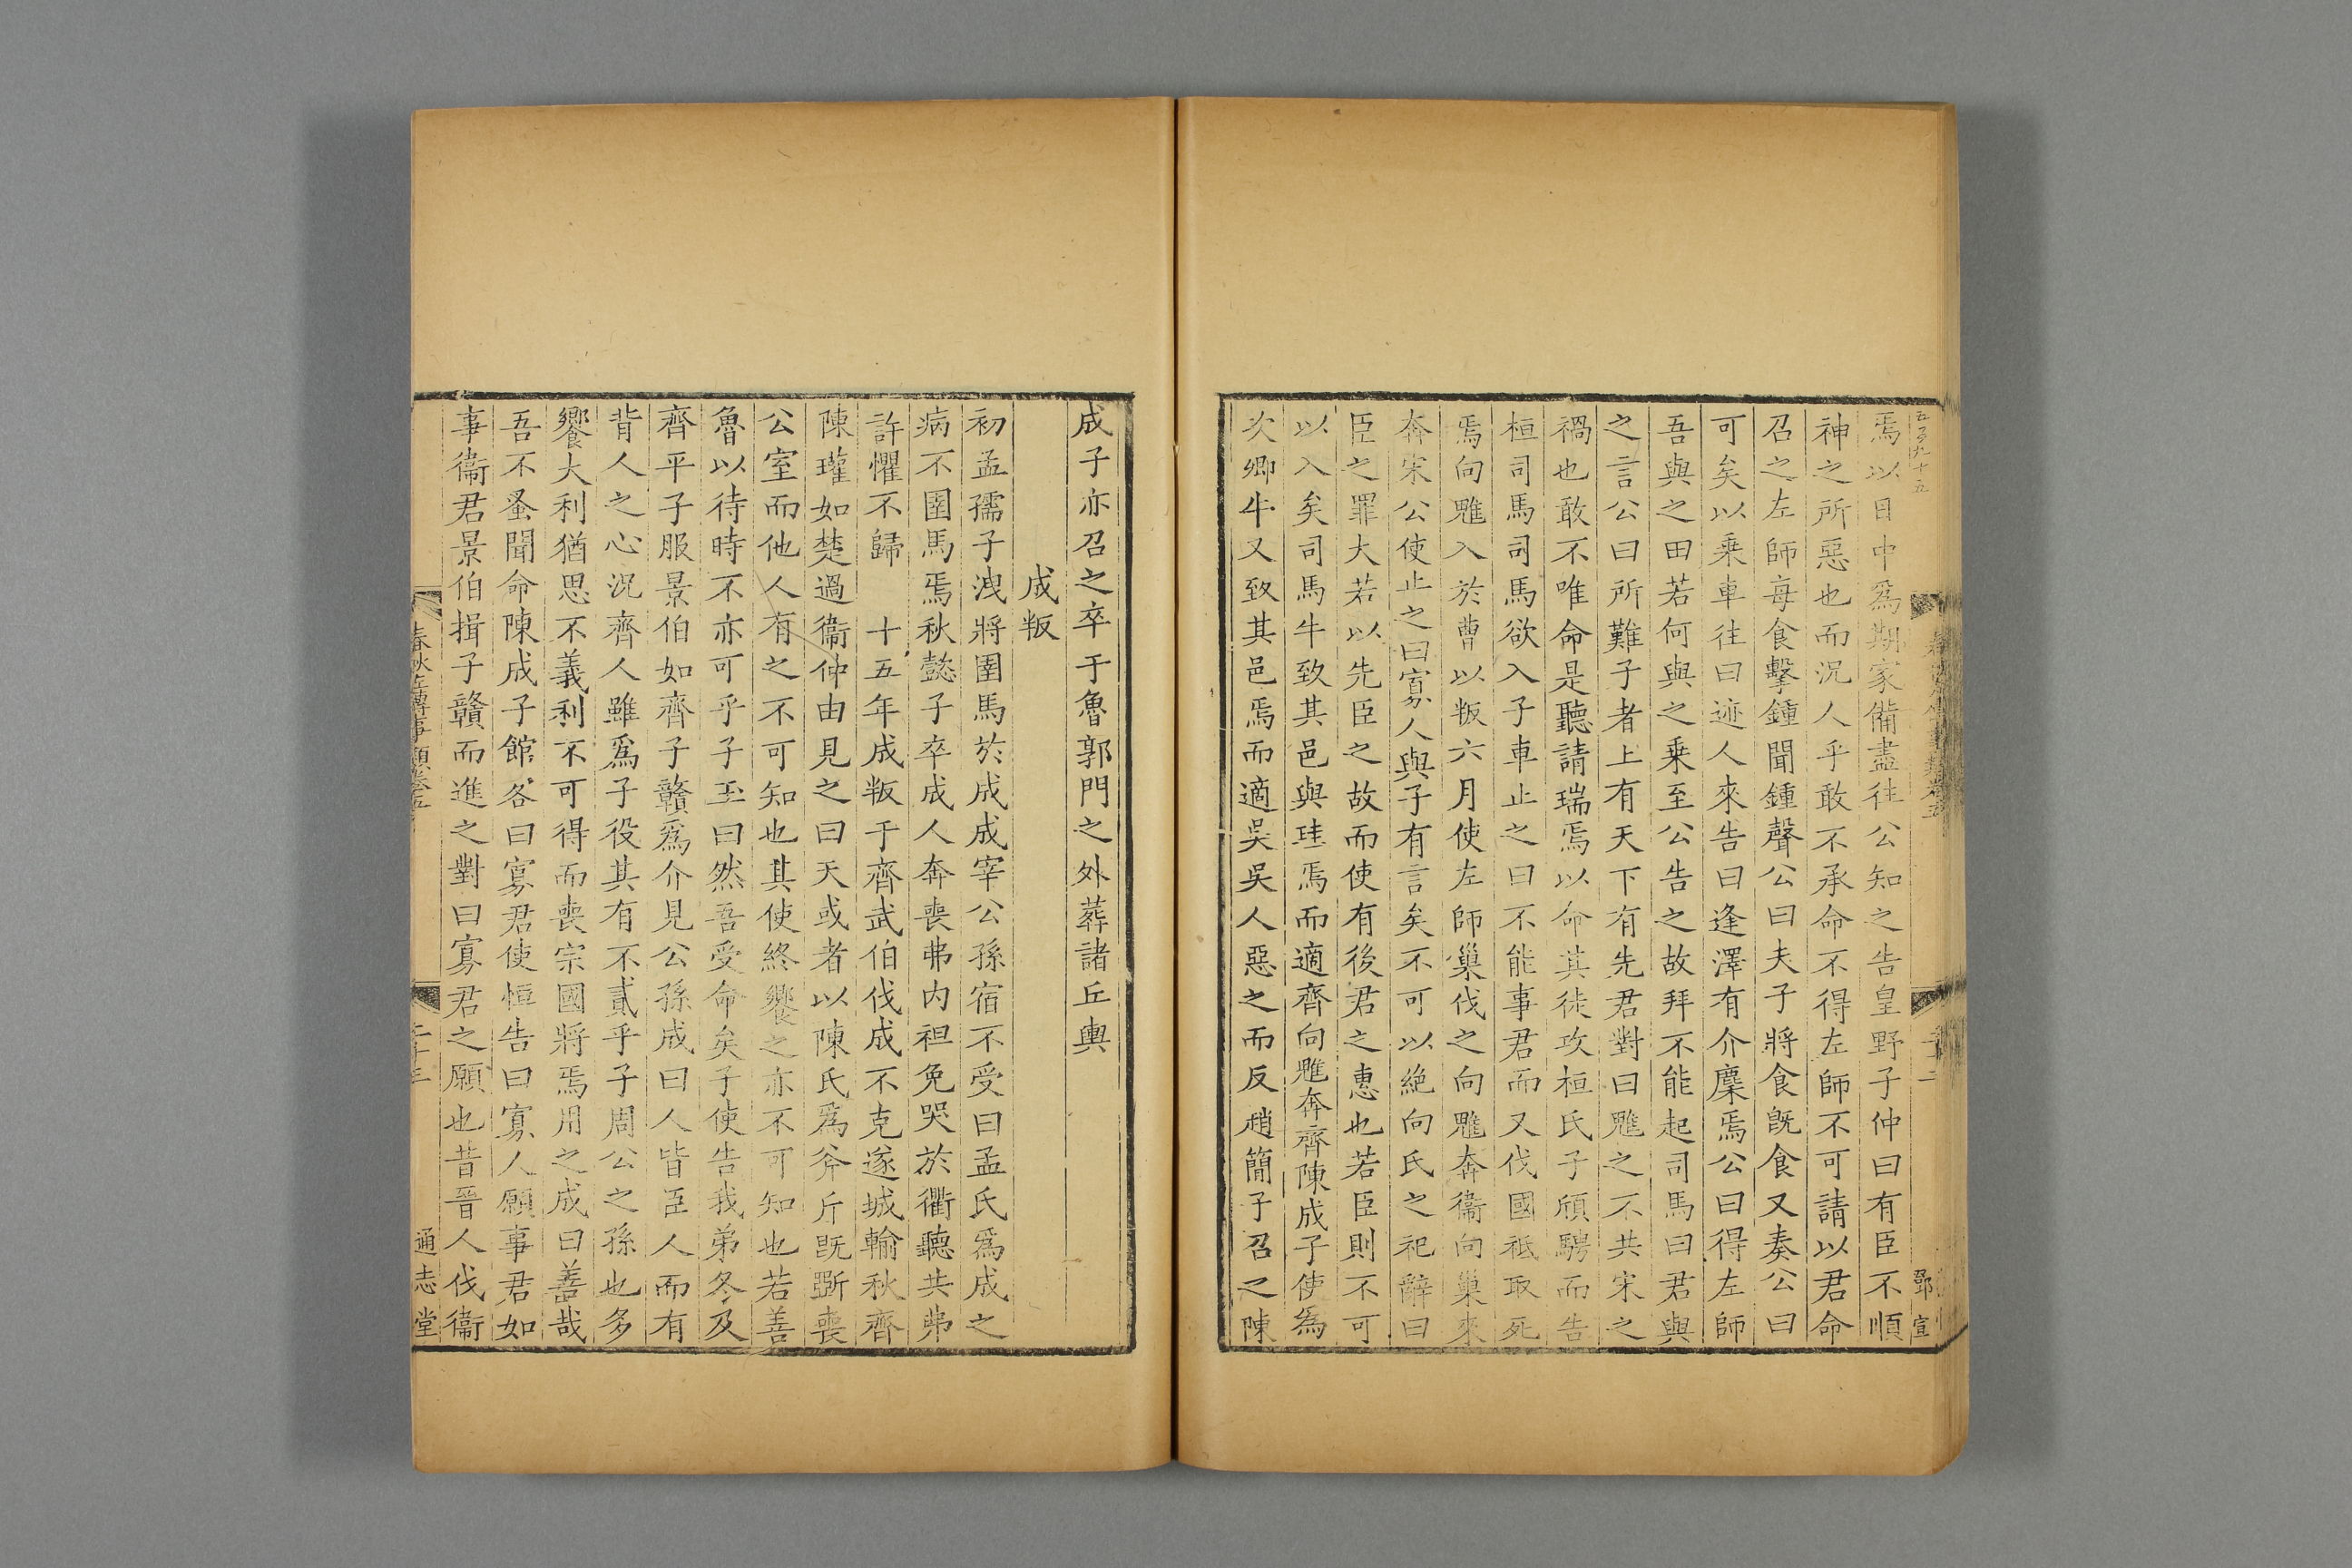 焉以日中爲期家備盡往公知之告皇野子仲曰有臣不順
神之所惡也而況人乎敢不承命不得左師不可請以君命
召之左師每食擊鍾聞鍾聲公曰夫子將食旣食又奏公曰
可矣以乘車往曰迹人來告曰逢澤有介麇焉公曰得左師
吾與之田若何與之乘至公告之故拜不能起司馬曰君與
之言公曰所難子者上有天下有先君對曰魋之不共宋之
禍也敢不唯命是聽請瑞焉以命其徒攻桓氏子頎騁而告
桓司馬司馬欲入子車止之曰不能事君而又伐國祗取死
焉向魋入於曹以叛六月使左師巢伐之向魋奔衞向巢來
奔宋公使止之曰寡人與子有言矣不可以絶向氏之祀辭曰
臣之罪大若以先臣之故而使有後君之惠也若臣則不可
以入矣司馬牛致其邑與珪焉而適齊向魋奔齊陳成子使爲
次卿牛又致其邑焉而適吳吳人惡之而反趙簡子召之陳
成子亦召之卒于魯郭門之外葬諸丘輿
成叛
初孟孺子洩將圉馬於成成宰公孫宿不受曰孟氏爲成之
病不圉馬焉秋懿子卒成人奔喪弗内袒免哭於衢聽共弗
許懼不歸　十五年成叛于齊武伯伐成不克遂城輸秋齊
陳瓘如楚過衞仲由見之曰天或者以陳氏爲斧斤旣斲喪
公室而他人有之不可知也其使終饗之亦不可知也若善
魯以待時不亦可乎子玉曰然吾受命矣子使告我弟冬及
齊平子服景伯如齊子贛爲介見公孫成曰人皆臣人而有
背人之心況齊人雖爲子役其有不貳乎子周公之孫也多
饗大利猶思不義利不可得而喪宗國將焉用之成曰善哉
吾不蚤聞命陳成子館客曰寡君使恒告曰寡人願事君如
事衞君景伯揖子贛而進之對曰寡君之願也昔晉人伐衞
春秋左傳事類卷五
二十三
通志堂